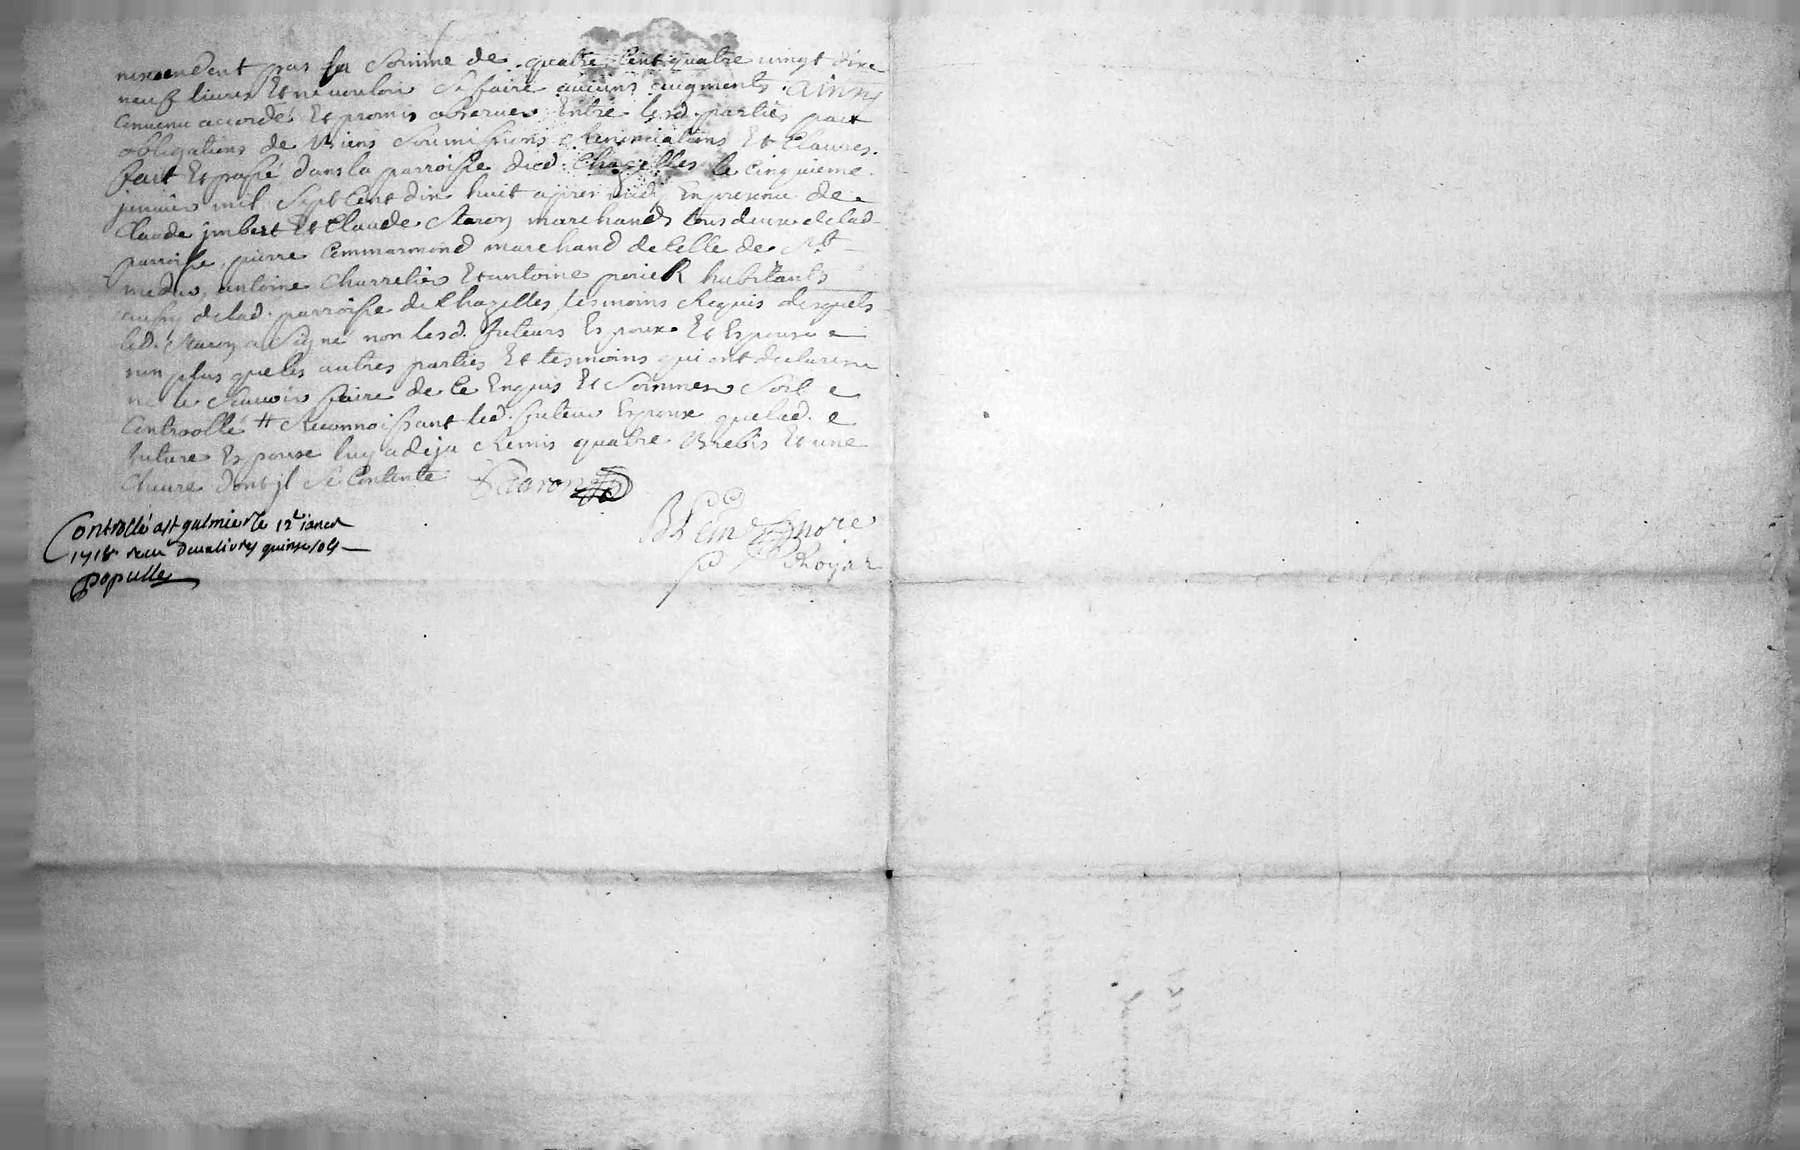 nexcendent pas la somme de quatre cent quatre vingt dixe
neuf livres Et ne vouloir se faire aucuns augments. Ainsy
Convenu accordé Et promis observer Entre lesd. parties par
obligations de Biens soumissions Renonciations Et Clauses.
fait Et passé dans la parroisse dud. Chazelles le cinquieme.
janvier mil sept Cent dix huit apres midy En presence de
Claude jmbert Et Claude Staron marchands tous deux de lad.
parroisse, pierre Commarmond marchand de Celle de St
medar, antoine Charretier Et antoine perier habitants
aussy de lad. parroisse de Chazelles tesmoins Requis desquels
led. Staron a Signé non lesd. futeurs Espoux Et Espouse
non plus que les autres parties Et tesmoins qui ont declaré
ne le Scavoir faire de Ce Enquis Et Sommes Soit
Controllé # Reconnoissant led. futeur Espoux que lad.
future Espouse luy a deja Remis quatre Brebis Et une
Cheure dont jl se Contente Staron
Controllé a st galmier le 12e janer
1718 receu deux livres quinse sols
Populle
Royal